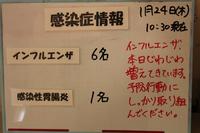 感染症情報
1月24日(木)
10:30現在
インフルエンザ 6名
感染性胃腸炎 1名
インフルエンザ、
本日じわじわ
増えてきています。
予防行動に
しっかり取り組
んでください。